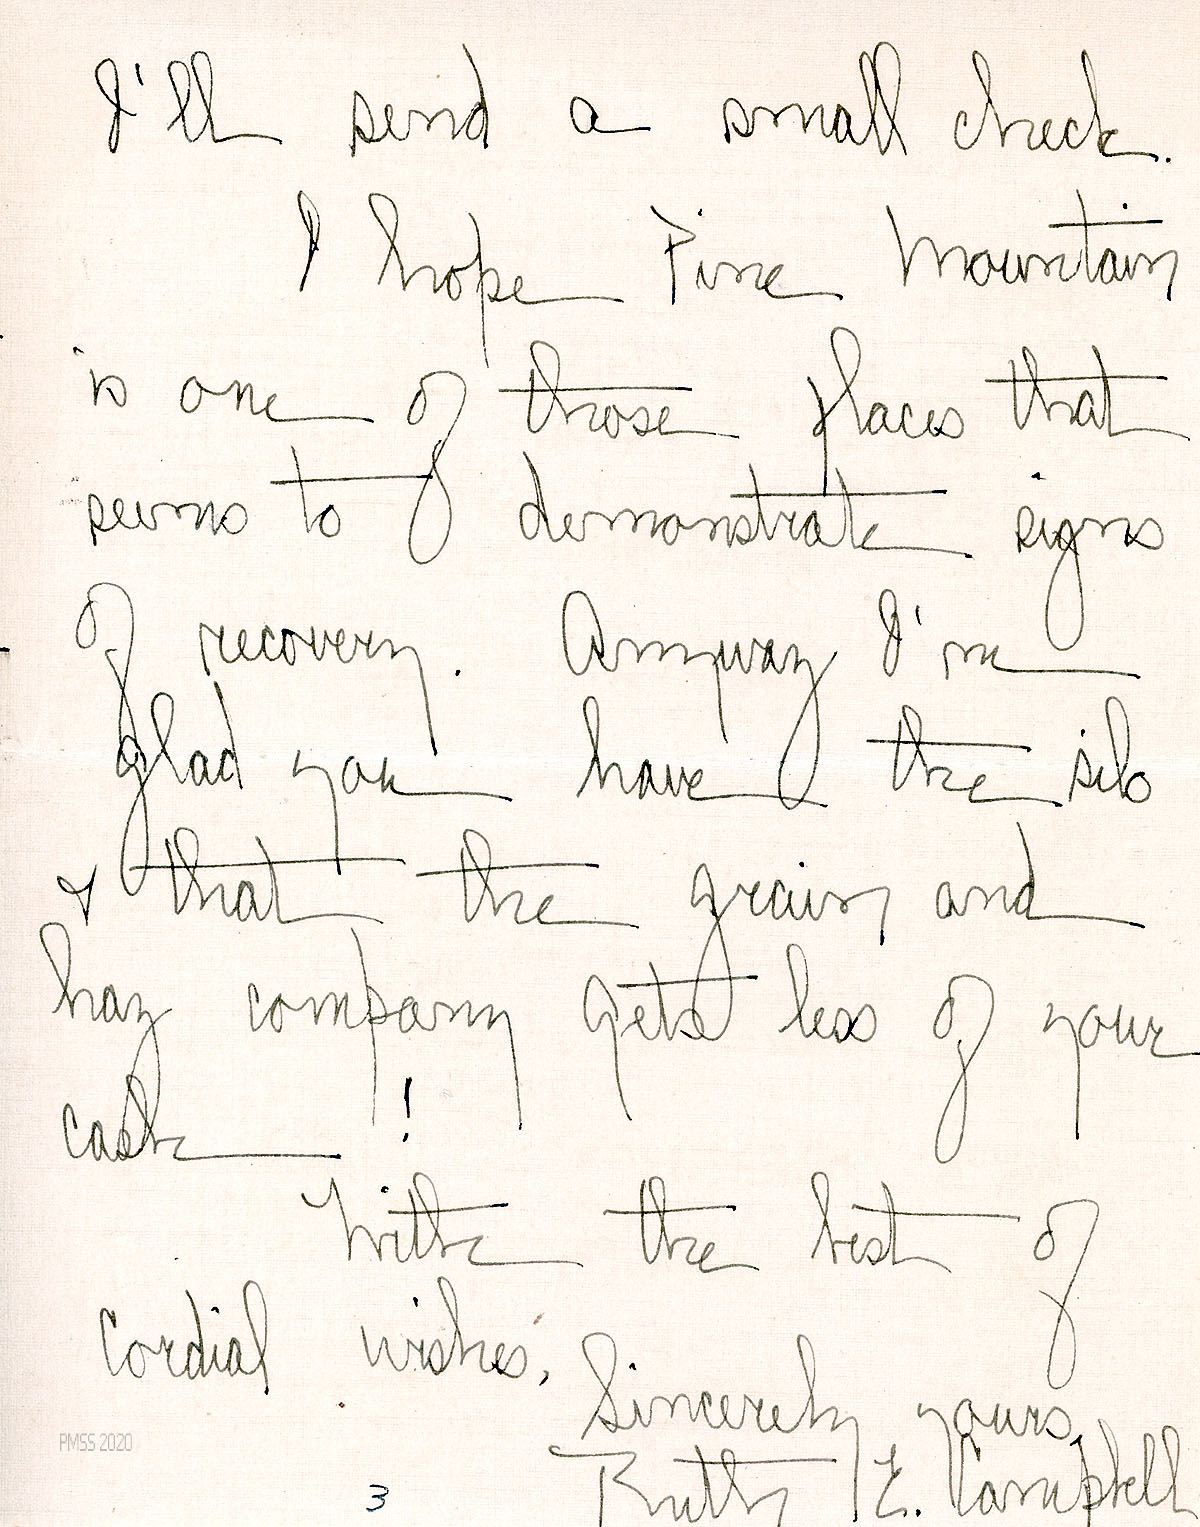 I'll send a small check.
I hope Pine Mountain
is one of those places that
seems to demonstrate signs
of recovery. Anyway I'm
glad you have the silo
& that the grain and
hay company gets less of your
cash!
With the best of
cordial wishes,
Sincerely yours,
Ruth E. Campbell
PMSS 2020
3